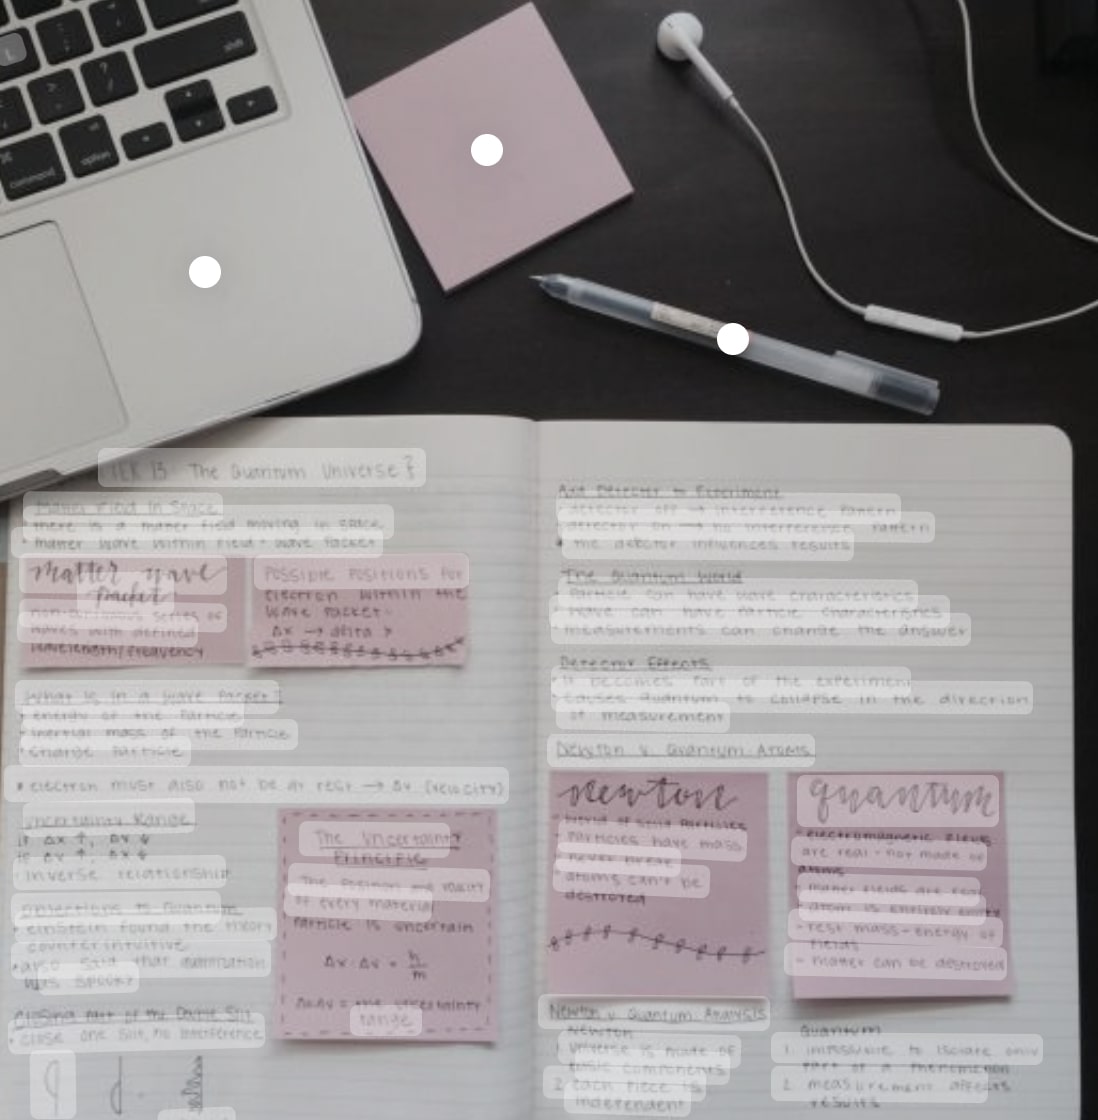 shift
option
command
TEK 13: The Quantum Universe
Matter Field In Space
there is a matter field moving in space
matter wave within field = wave packet
matter wave
packet
non-continuous series of
waves with defined
wavelength/frequency
Possible positions for
electron within the
wave packet.
Δx → delta x
What is in a Wave Packet?
energy of the Particle
inertial mass of the Particle
charge Particle
* electron must also not be at rest → Δv (velocity)
Uncertainty Range
if Δx ↑, Δv ↓
if Δv ↑, Δx ↓
inverse relationship
Objections to Quantum
einstein found the theory
counterintuitive
also said that quantization
was spooky
The Uncertainty
Principle
The position and velocity
of every material
Particle is uncertain
Δx·Δv = h/m
ΔxΔv = the uncertainty
range
Closing part of the Double Slit
close one slit, no interference
Add Detector to Experiment
detector off → interference pattern
detector on → no interference pattern
the detector influences results
The Quantum World
Particle can have wave characteristics
wave can have Particle characteristics
measurements can change the answer
Detector Effects
it becomes part of the experiment
causes quantum to collapse in the direction
of measurement
Newton v. Quantum Atoms
newton
world of solid particles
Particles have mass
never break
atoms can't be
destroyed
quantum
electromagnetic fields
are real - not made of
atoms
matter fields are real
atom is entirely empty
rest mass = energy of
fields
matter can be destroyed
Newton v. Quantum Analysis
Newton
1. Universe is made of
basic components
2. Each piece is
independent
Quantum
1. impossible to isolate only
part of a phenomenon
2. measurement affects
results